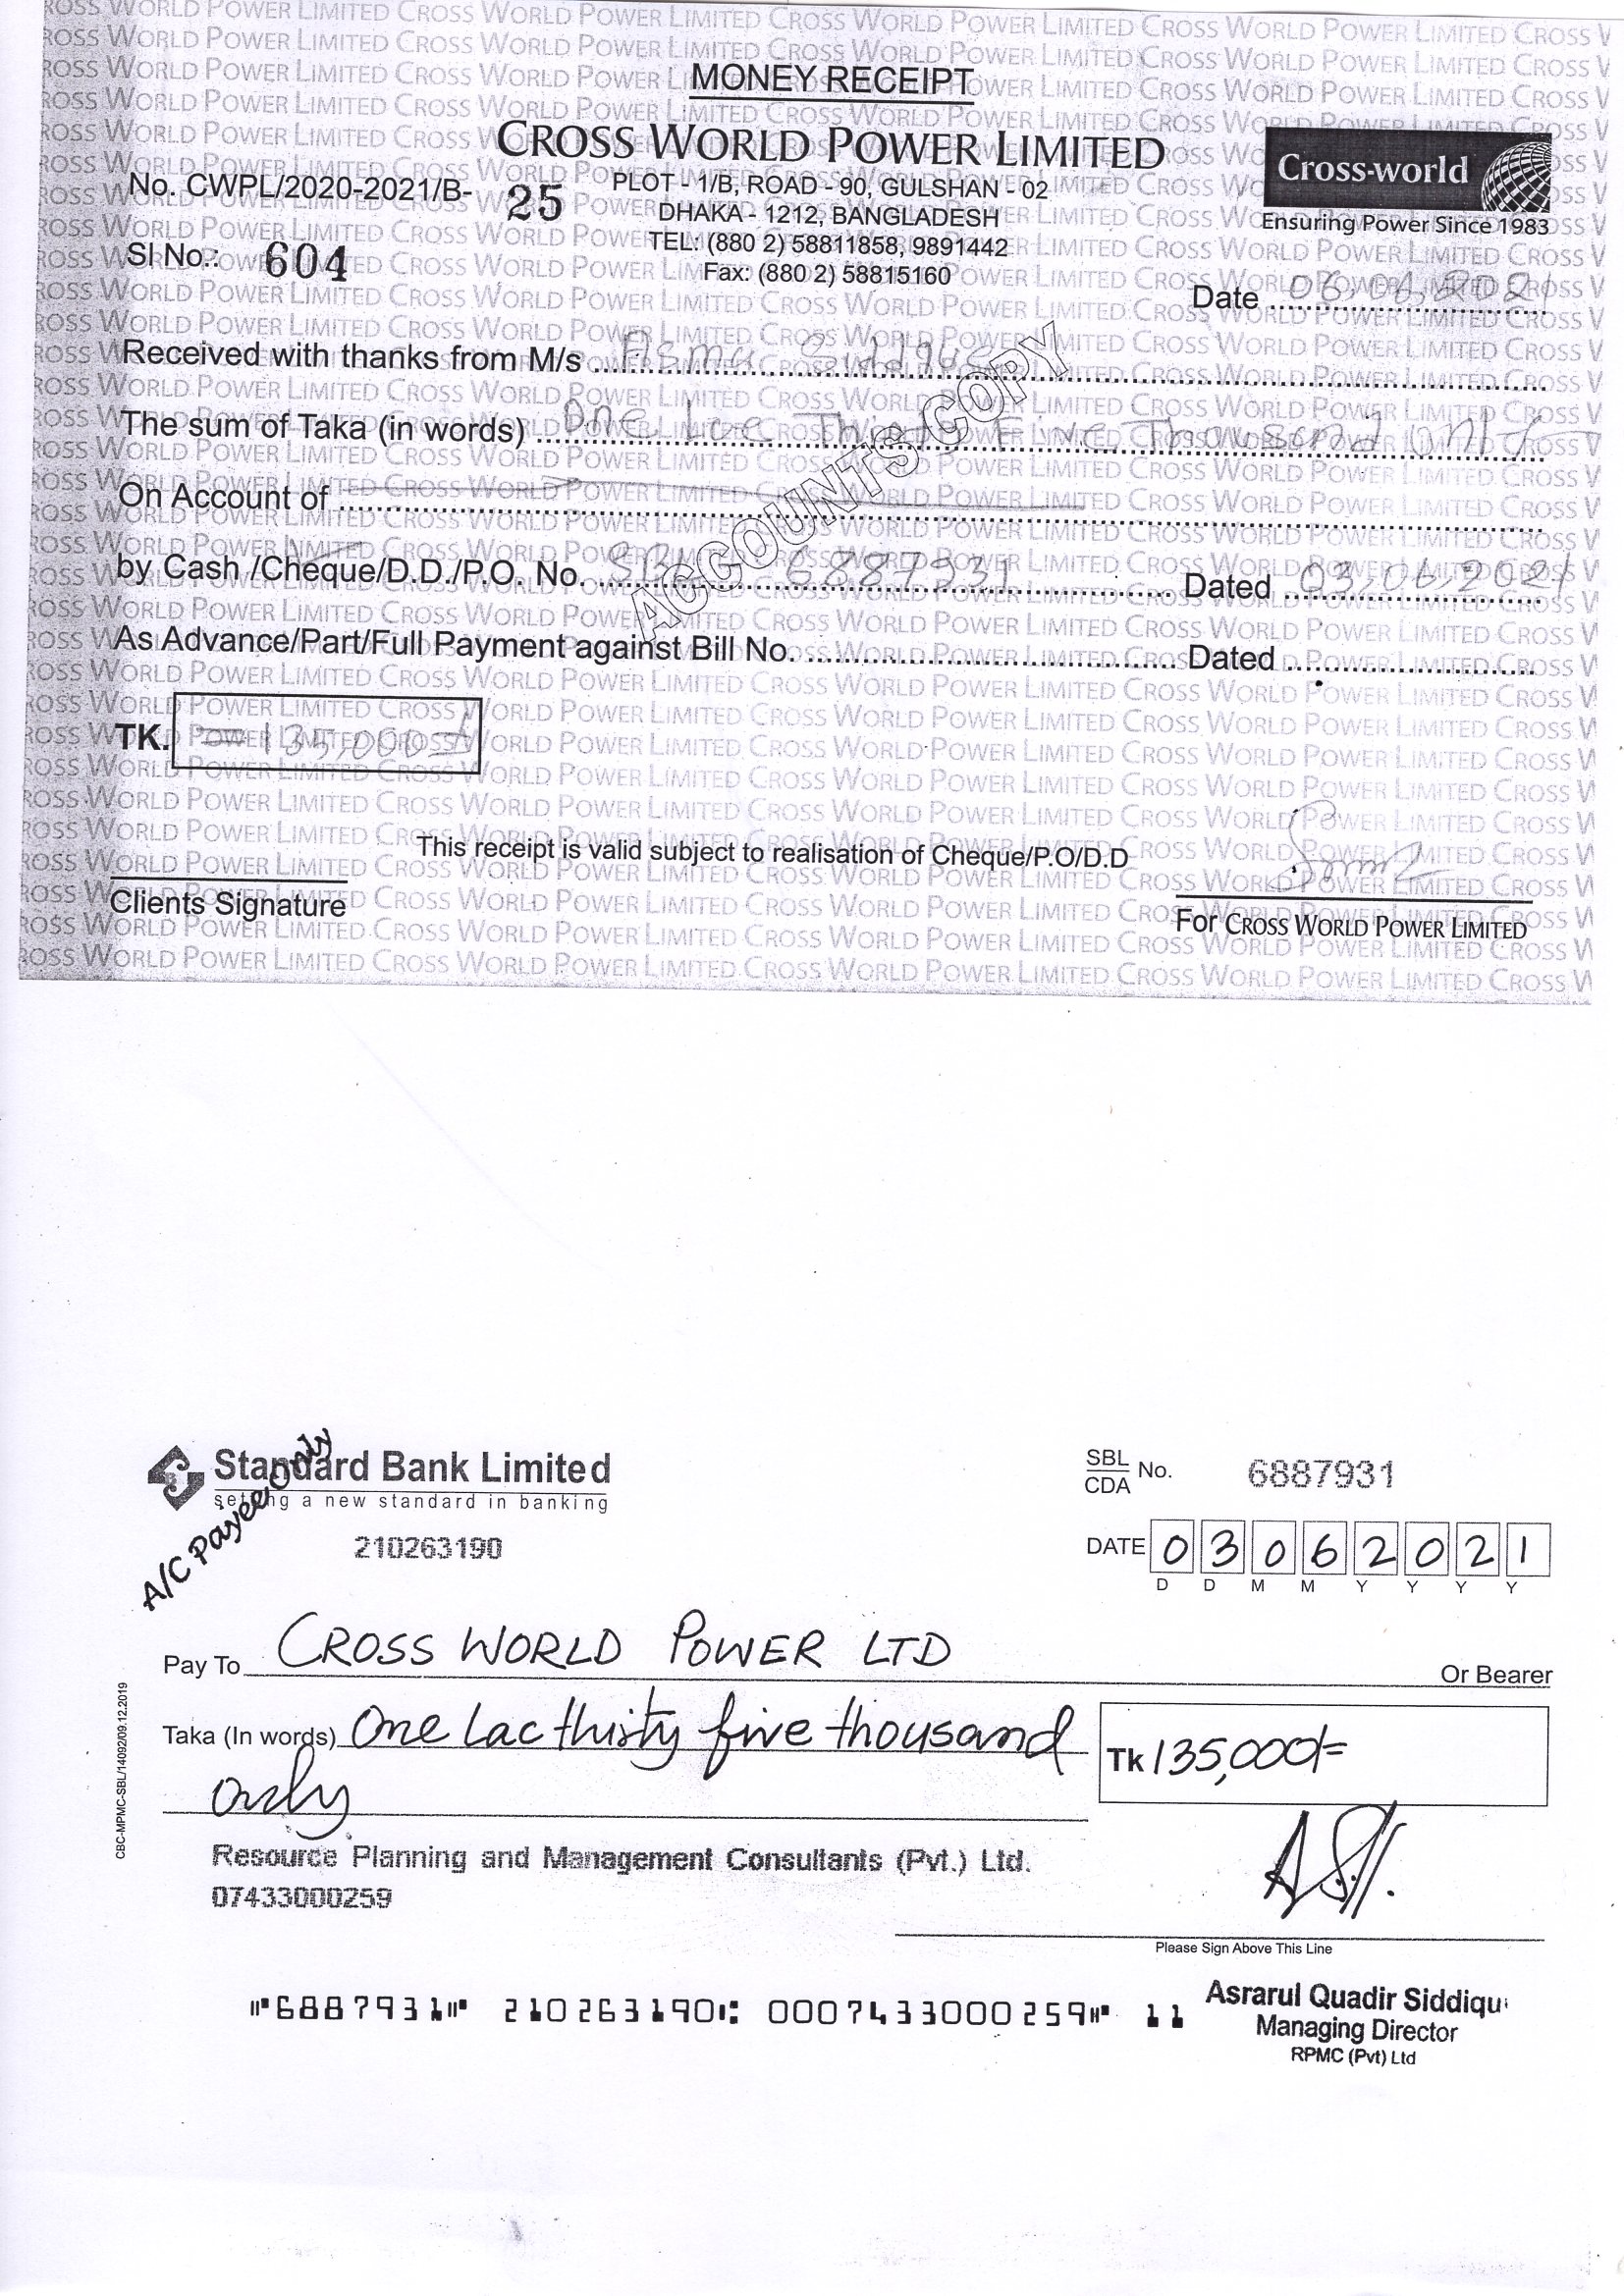 MONEY RECEIPT
CROSS WORLD POWER LIMITED
Cross-world
Ensuring Power Since 1983
No. CWPL/2020-2021/B- 25
PLOT - 1/B, ROAD - 90, GULSHAN - 02
DHAKA - 1212, BANGLADESH
TEL: (880 2) 58811858, 9891442
Fax: (880 2) 58815160
Sl No.: 604
Date 06.06.2021
Received with thanks from M/s Asma
The sum of Taka (in words) One Lac Thirty Five Thousand only
On Account of
by Cash /Cheque/D.D./P.O. No. SBL 6887931 Dated 03.06.2021
As Advance/Part/Full Payment against Bill No. Dated
ACCOUNTS COPY
TK. 135,000/=
This receipt is valid subject to realisation of Cheque/P.O/D.D
Clients Signature
For CROSS WORLD POWER LIMITED
Standard Bank Limited
setting a new standard in banking
A/C Payee Only
210263190
SBL/CDA No. 6887931
DATE 03062021
D D M M Y Y Y Y
Pay To CROSS WORLD POWER LTD Or Bearer
Taka (In words) One Lac thirty five thousand
only
Tk 135,000/=
CBC-MPMC-SBL/14092/09.12.2019
Resource Planning and Management Consultants (Pvt.) Ltd.
07433000259
Please Sign Above This Line
⑈6887931⑈ 210263190⑆ 0007433000259⑈ 11
Asrarul Quadir Siddiqu
Managing Director
RPMC (Pvt) Ltd